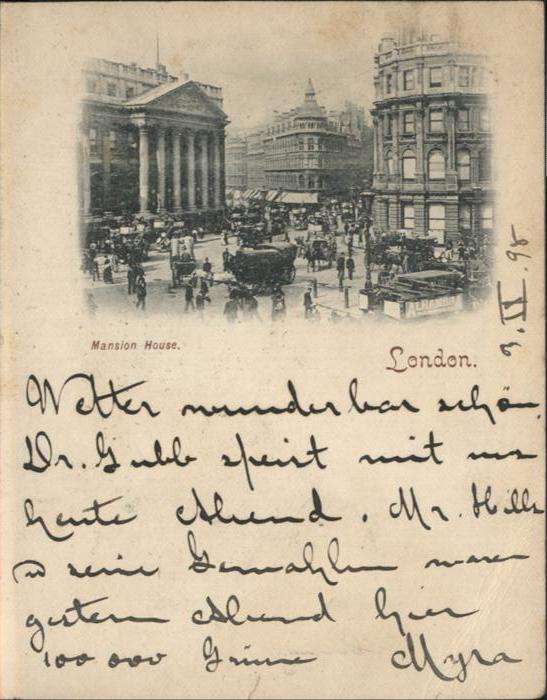 Mansion House.
London.
9. II. 98
Wetter wunderbar schön.
Dr. Gubb speist mit uns
heute Abend. Mr. Hills
u seine Gemahlin waren
gestern Abend hier
100 000 Grüsse Myra